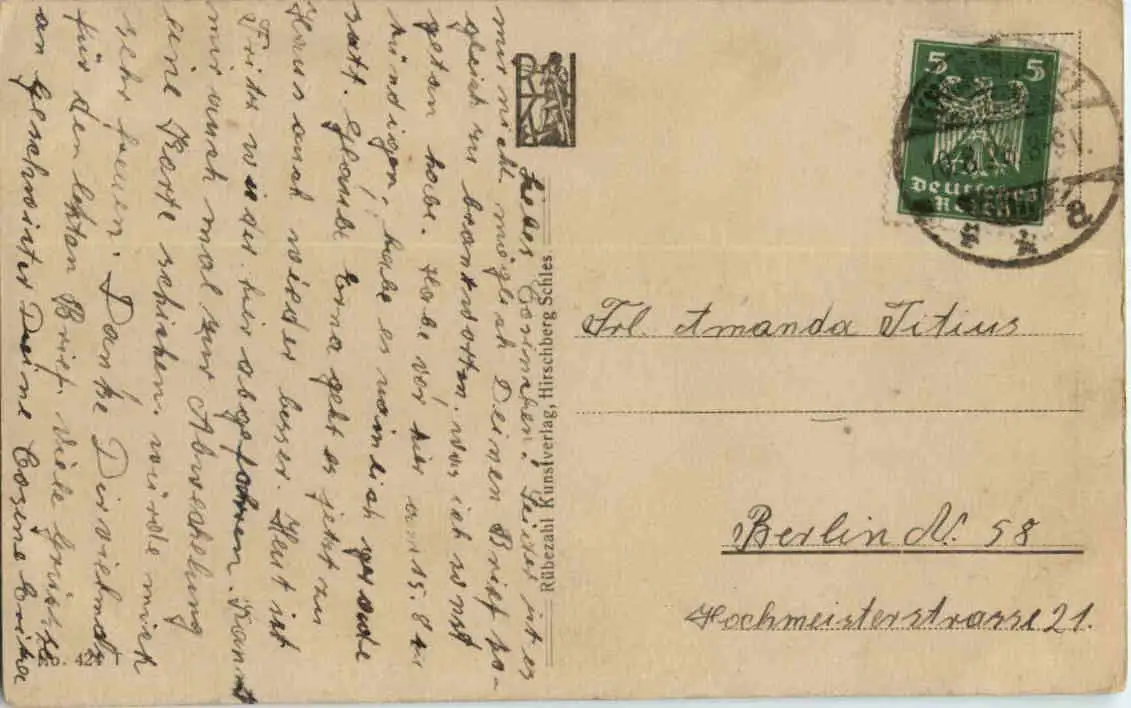 Liebes Cosinchen! Leider ist es
mir nicht möglich Deinen Brief so-
gleich zu beantworten, was ich sonst
getan habe. Habe vor hier am 15.8 zu
kündigen, habe es nämlich gerade
satt. Glaube Erna geht es jetzt zu
Haus auch wieder besser. Heut ist
Fritz wieder hier abgefahren. Kannst
mir auch mal zur Abwechslung
eine Karte schicken. würde mich
sehr freuen. Danke Dir vielmals
für den letzten Brief. Viele Grüsse
an Geschwister Deine Cosine
Rübezahl Kunstverlag, Hirschberg Schles
No. 424
5 5
Deutsches
Reich
Frl. Amanda Titius
Berlin N. 58
Hochmeisterstrasse 21.